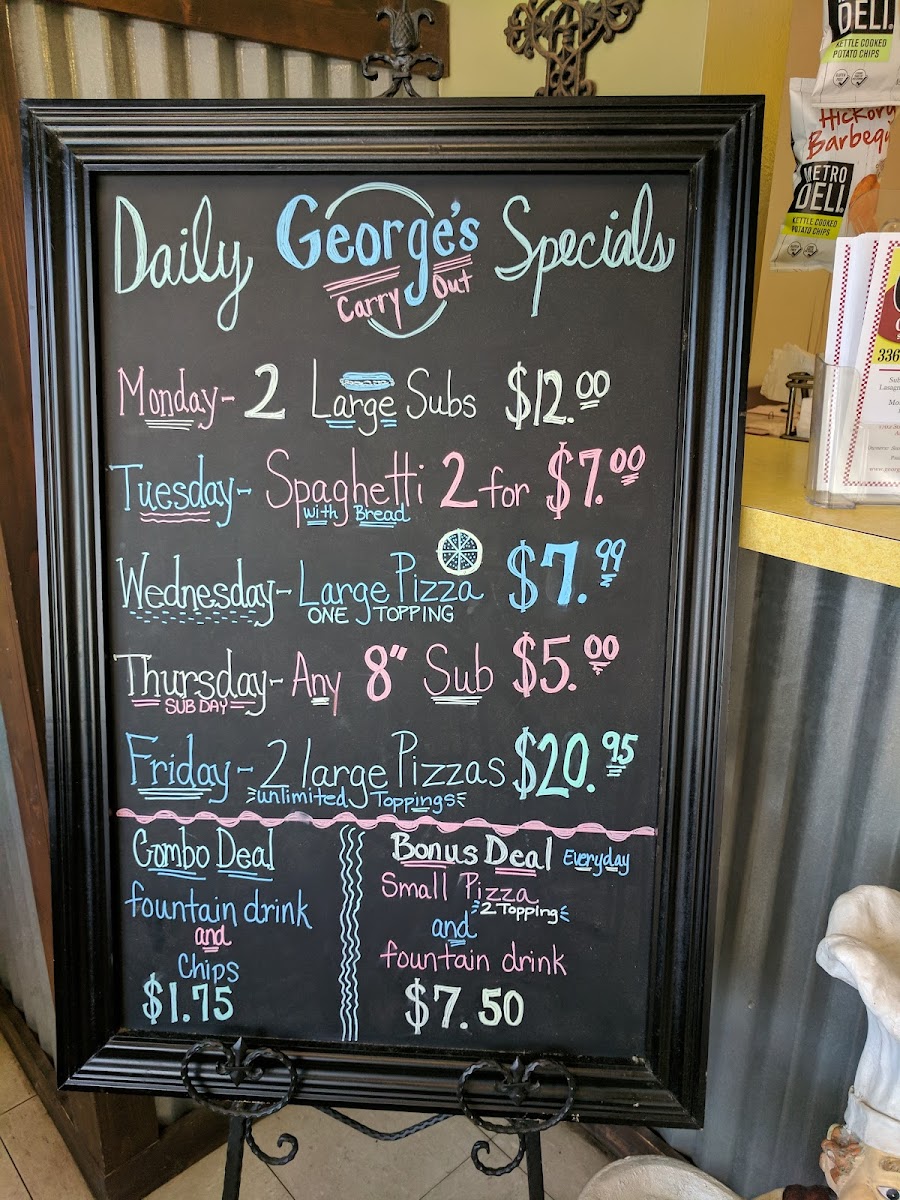 Daily George's Specials
Carry Out
Monday- 2 Large Subs $12.00
Tuesday- Spaghetti 2 for $7.00
with Bread
Wednesday- Large Pizza $7.99
ONE TOPPING
Thursday- Any 8" Sub $5.00
SUB DAY
Friday- 2 large Pizzas $20.95
unlimited Toppings
Combo Deal
fountain drink
and
Chips
$1.75
Bonus Deal Everyday
Small Pizza
2 Topping
and
fountain drink
$7.50
DELI
KETTLE COOKED
POTATO CHIPS
Hickory
Barbeq
METRO
DELI
KETTLE COOKED
POTATO CHIPS
336